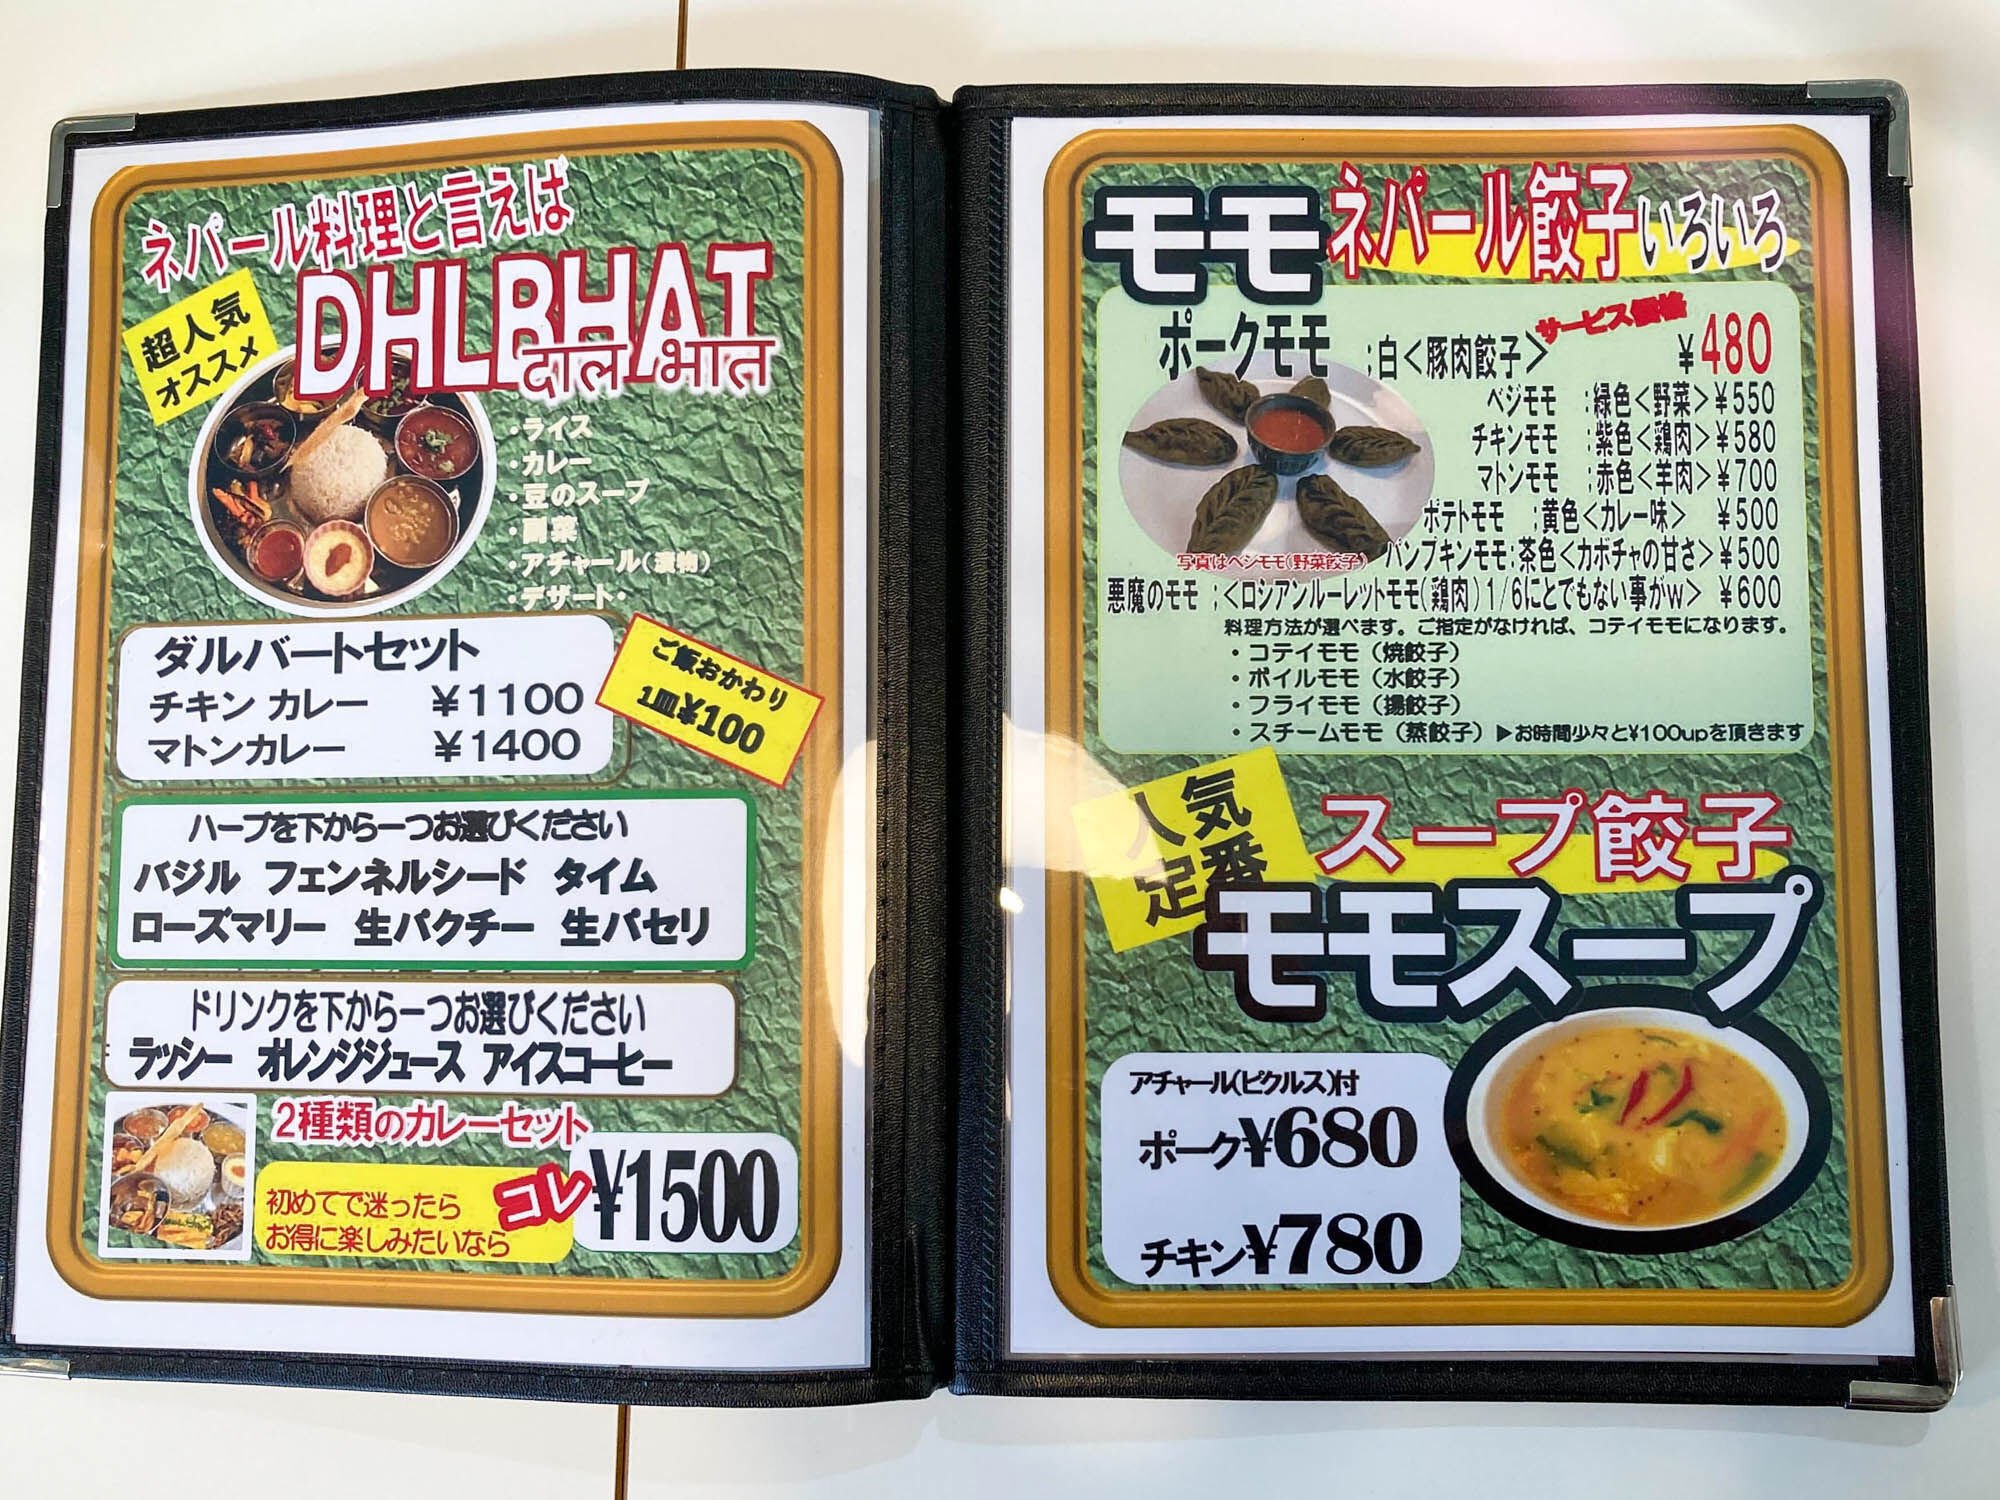 ネパール料理と言えば
DHLBHAT
दाल भात
超人気
オススメ
・ライス
・カレー
・豆のスープ
・副菜
・アチャール(漬物)
・デザート・
ダルバートセット
チキン カレー ¥1100
マトンカレー ¥1400
ご飯おかわり
1皿¥100
ハーブを下から一つお選びください
バジル フェンネルシード タイム
ローズマリー 生パクチー 生パセリ
ドリンクを下から一つお選びください
ラッシー オレンジジュース アイスコーヒー
2種類のカレーセット
初めてで迷ったら
お得に楽しみたいなら
コレ
¥1500
モモ ネパール餃子いろいろ
サービス価格
ポークモモ ;白<豚肉餃子> ¥480
ベジモモ ;緑色<野菜>¥550
チキンモモ ;紫色<鶏肉>¥580
マトンモモ ;赤色<羊肉>¥700
ポテトモモ ;黄色<カレー味> ¥500
パンプキンモモ;茶色<カボチャの甘さ>¥500
写真はベジモモ(野菜餃子)
悪魔のモモ ;<ロシアンルーレットモモ(鶏肉)1/6にとでもない事がw> ¥600
料理方法が選べます。ご指定がなければ、コテイモモになります。
・コテイモモ(焼餃子)
・ボイルモモ(水餃子)
・フライモモ(揚餃子)
・スチームモモ(蒸餃子)▶お時間少々と¥100upを頂きます
人気
定番
スープ餃子
モモスープ
アチャール(ピクルス)付
ポーク¥680
チキン¥780